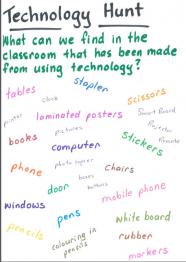 Technology Hunt
What can we find in the
classroom that has been made
from using technology?
stapler
tables
clock
scissors
printer
laminated posters
Smart Board
Projector
Remote
pictures
books
computer
stickers
photo copier
phone
boxes
chairs
door
buttons
mobile phone
windows
pens
white board
pencils
colouring in
pencils
rubber
markers